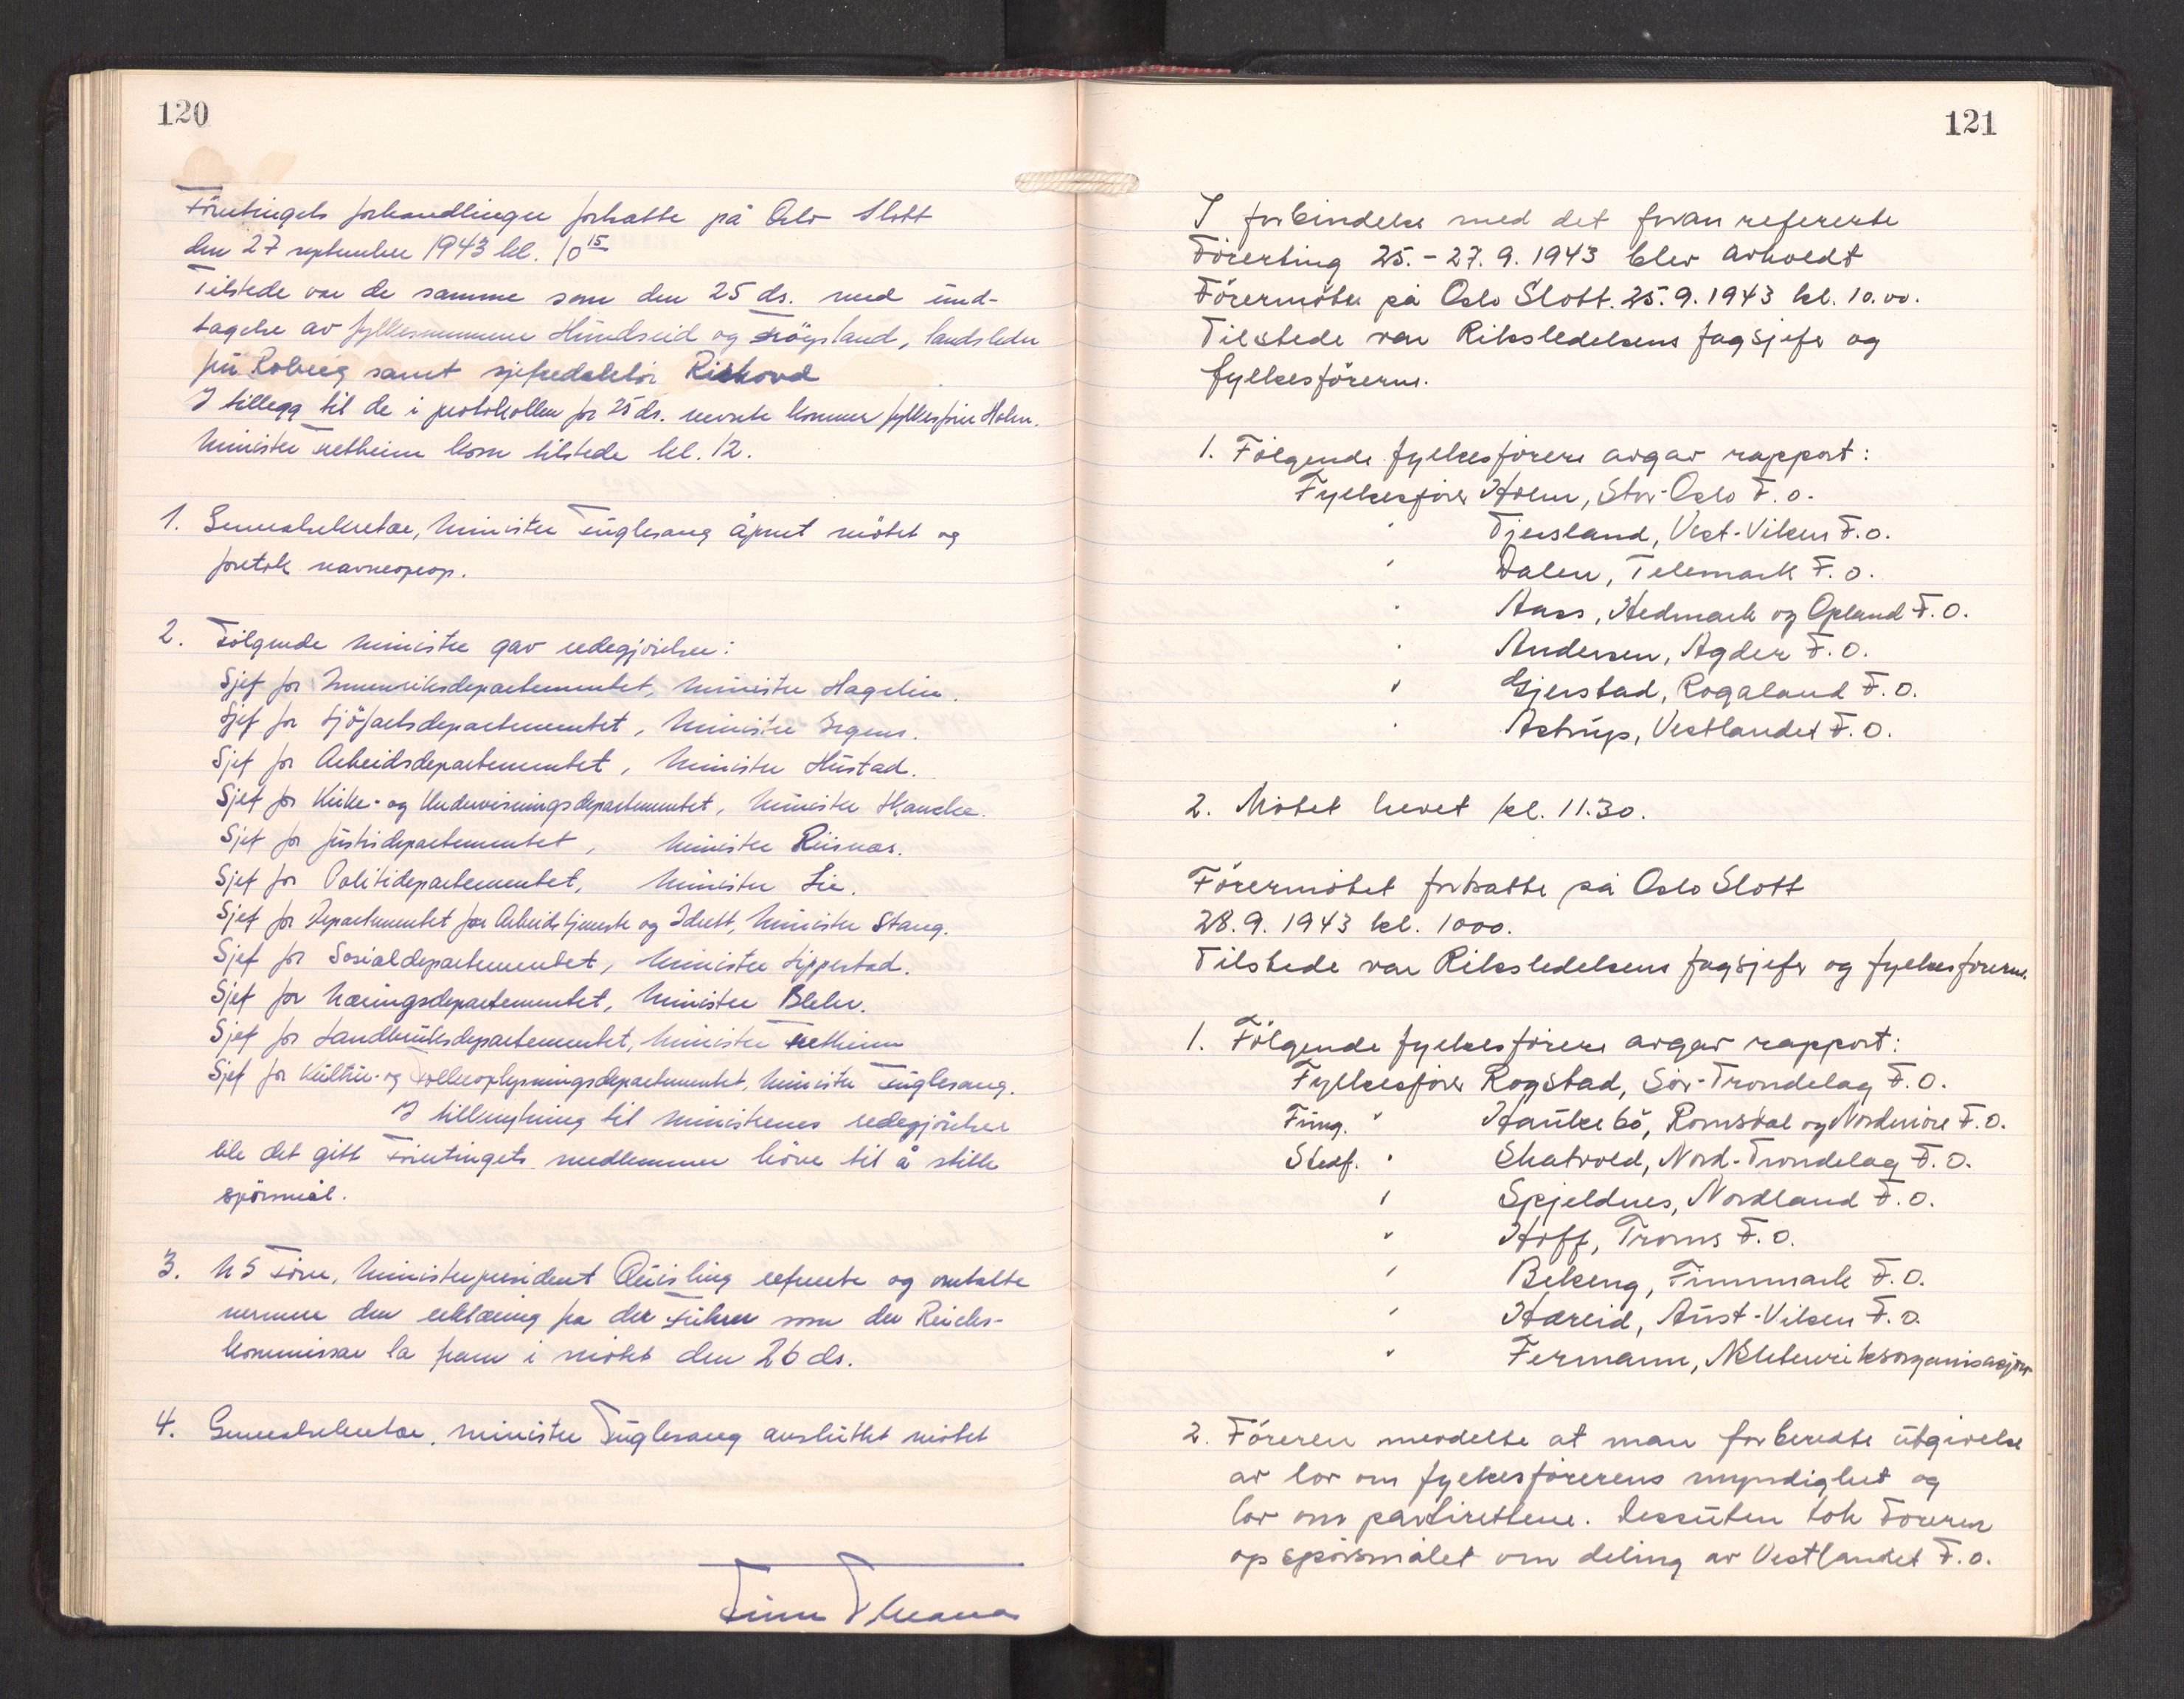 120
Förertingets forhandlinger forsatte på Oslo Slott
den 27 september 1943 kl. 10 15
Tilstede var de samme som den 25 ds. med und-
tagelse av fylkesmennene Hundseid og Frögsland, landsleder
fru Roberg samt sjefredaktör Rishovd
I tillegg til de i protokollen for 25 ds. nevnte kommer fylkesförer Holm.
Minister Fretheim kom tilstede kl. 12.
1. Generalsekretær, Minister Fuglesang åpnet mötet og
foretok navneoprop.
2. Fölgende ministre gav redegjörelser:
Sjef for Innenriksdepartementet, Minister Hagelin.
Sjef for Sjöfartsdepartementet, Minister Irgens.
Sjef for Arbeidsdepartementet, Minister Hustad.
Sjef for Kirke- og Undervisningsdepartementet, Minister Skancke.
Sjef for Justisdepartementet, Minister Riisnæs.
Sjef for Politidepartementet, Minister Lie.
Sjef for Departementet for Arbeidstjeneste og Idrett, Minister Stang.
Sjef for Sosialdepartementet, Minister Lippestad.
Sjef for Næringsdepartementet, Minister Blehr.
Sjef for Landbruksdepartementet, Minister Fretheim
Sjef for Kultur- og Folkeoplysningsdepartementet, Minister Fuglesang.
I tilknytning til ministrenes redegjörelser
ble det gitt Förertingets medlemmer höve til å stille
spörsmål.
3. NS Förer, Ministerpresident Quisling refererte og omtalte
nermere den erklæring fra der Führer som der Reichs-
kommissar la fram i mötet den 26 ds.
4. Generalsekretær, minister Fuglesang avsluttet mötet
Finn
121
I forbindelse med det foran refererte
Förerting 25.-27.9.1943 blev avholdt
Förermöter på Oslo Slott. 25.9.1943 kl. 10.00.
Tilstede var Riksledelsens fagsjefer og
fylkesförerne.
1. Fölgende fylkesförere avgav rapport:
Fylkesförer Holm, Stor-Oslo F.O.
" Tjersland, Vest-Viken F.O.
" Dalen, Telemark F.O.
" Aass, Hedmark og Opland F.O.
" Andersen, Agder F.O.
" Gjerstad, Rogaland F.O.
" Astrup, Vestlandet F.O.
2. Mötet hevet kl. 11.30.
Förermötet fortsatte på Oslo Slott
28.9.1943 kl. 1000.
Tilstede var Riksledelsens fagsjefer og fylkesförerne.
1. Fölgende fylkesförere avgav rapport:
Fylkesförer Rogstad, Sör-Tröndelag F.O.
Fung. " Haukebö, Romsdal og Nordmöre F.O.
Stedf. " Skatvold, Nord-Tröndelag F.O.
" Spjeldnes, Nordland F.O.
" Hoff, Troms F.O.
" Bekeng, Finnmark F.O.
" Hareid, Aust-Viken F.O.
" Fermann, NSUtenriksorganisasjon
2. Föreren meddelte at man forberedte utgivelse
av lov om fylkesförerens myndighet og
lov om partirettene. Dessuten tok Föreren
op spörsmålet om deling av Vestlandet F.O.